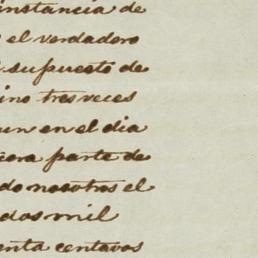 instancia de
el verdadero
supuesto de
ino tres veces
un en el dia
cera parte de
do nosotros el
dos mil
enta centavos